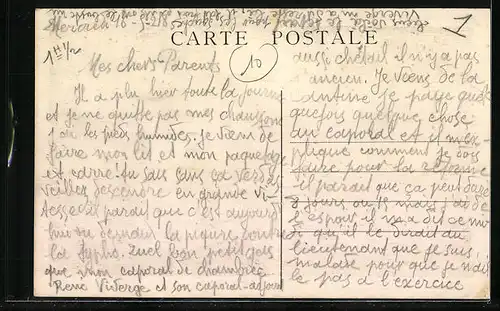 CARTE POSTALE
10
1
Mercredi
Mes chers Parents
Il a plu hier toute la journée
et je ne quitte pas mes chaussons
j'ai les pieds humides. Je viens de
faire mon lit et mon paquetage
est carré. Tu sais sans ça
descendre en grande vi-
tesse il parait que c'est aujourd
hui ou demain la piqure contre
la typho. Quel bon petit gars
que mon caporal de chambrée
René Viverge et son caporal-adjoint
aussi chétail il n'y a pas
ancien. Je viens de la
cantine je paye quel
quefois quelque chose
au caporal et il m'ex
plique comment je dois
faire pour la réforme
il parait que ça peut durer
8 jours ou 15 mais j'ai de
l'espoir il m'a dit ce ma
ti qu'il le dirait au
lieutenant que je suis
malade pour que je n'aie
pas à l'exercice